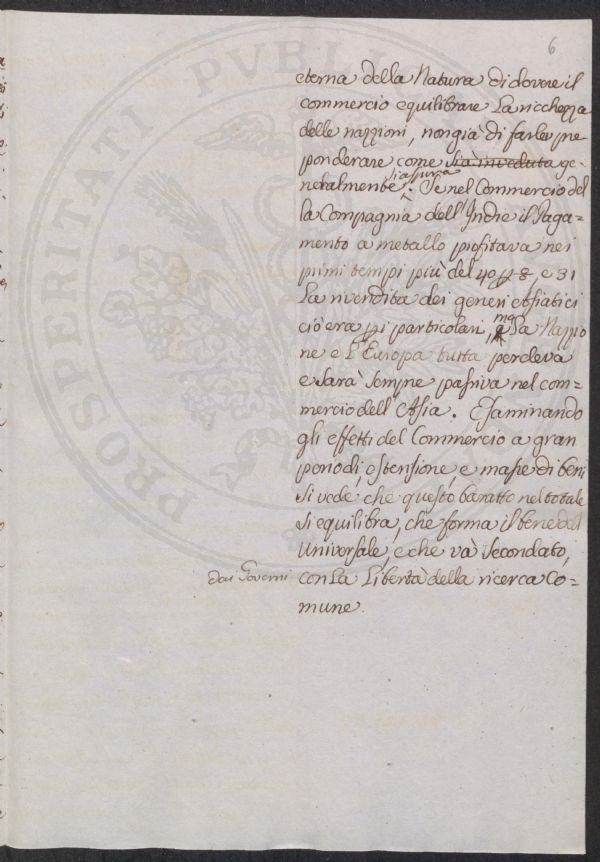 6
eterna della Natura di dovere il
commercio equilibrare La ricchezza
delle nazzioni, non già di farle pre
ponderare come sia inveduta ge=
sia pura
neralmente. Se nel Commercio del
la Compagnia dell'Indie il Paga=
mento a metallo profitava nei
primi tempi più del 40 p 8 e 31
La rivendita dei generi Asiatici
ciò era pi particolari, ma La Nazzio
ne e l'Europa tutta perdeva
e sarà sempre passiva nel com=
mercio dell'Asia. Esaminando
gli effetti del Commercio a gran
periodi, estensione, e masse di beni
si vede che questo baratto nel totale
si equilibra, che forma il bene dell
universale, e che và secondato,
dai Governi
con La Libertà della ricerca Co=
mune.
PROSPERITATI PVBLICAE